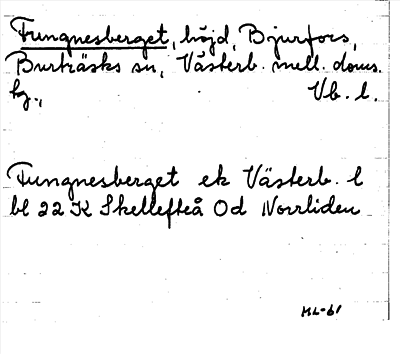 Tungnesberget, höjd, Bjurfors,
Burträsks sn, Västerb. mell. doms.
Vb. l.
Tungnesberget ek Västerb. l
bl 22 K Skellefteå Od Norrliden
ML-61